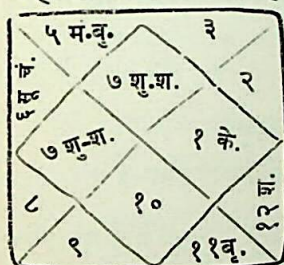 ५ मं.बु.
३
६ सू चं.
७ शु.श.
२
७ शु-श.
१ के.
८
१०
१२ श.
९
११बृ.